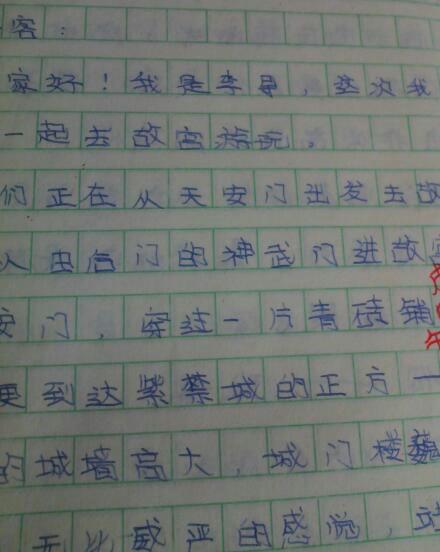 客：
家好！我是李导，这次我
一起去故宫游玩。
们正在从天安门出发去故
从由后门的神武门进故宫
安门，穿过一片青砖铺
更到达紫禁城的正方一
的城墙高大，城门楼巍
无比威严的感觉，站